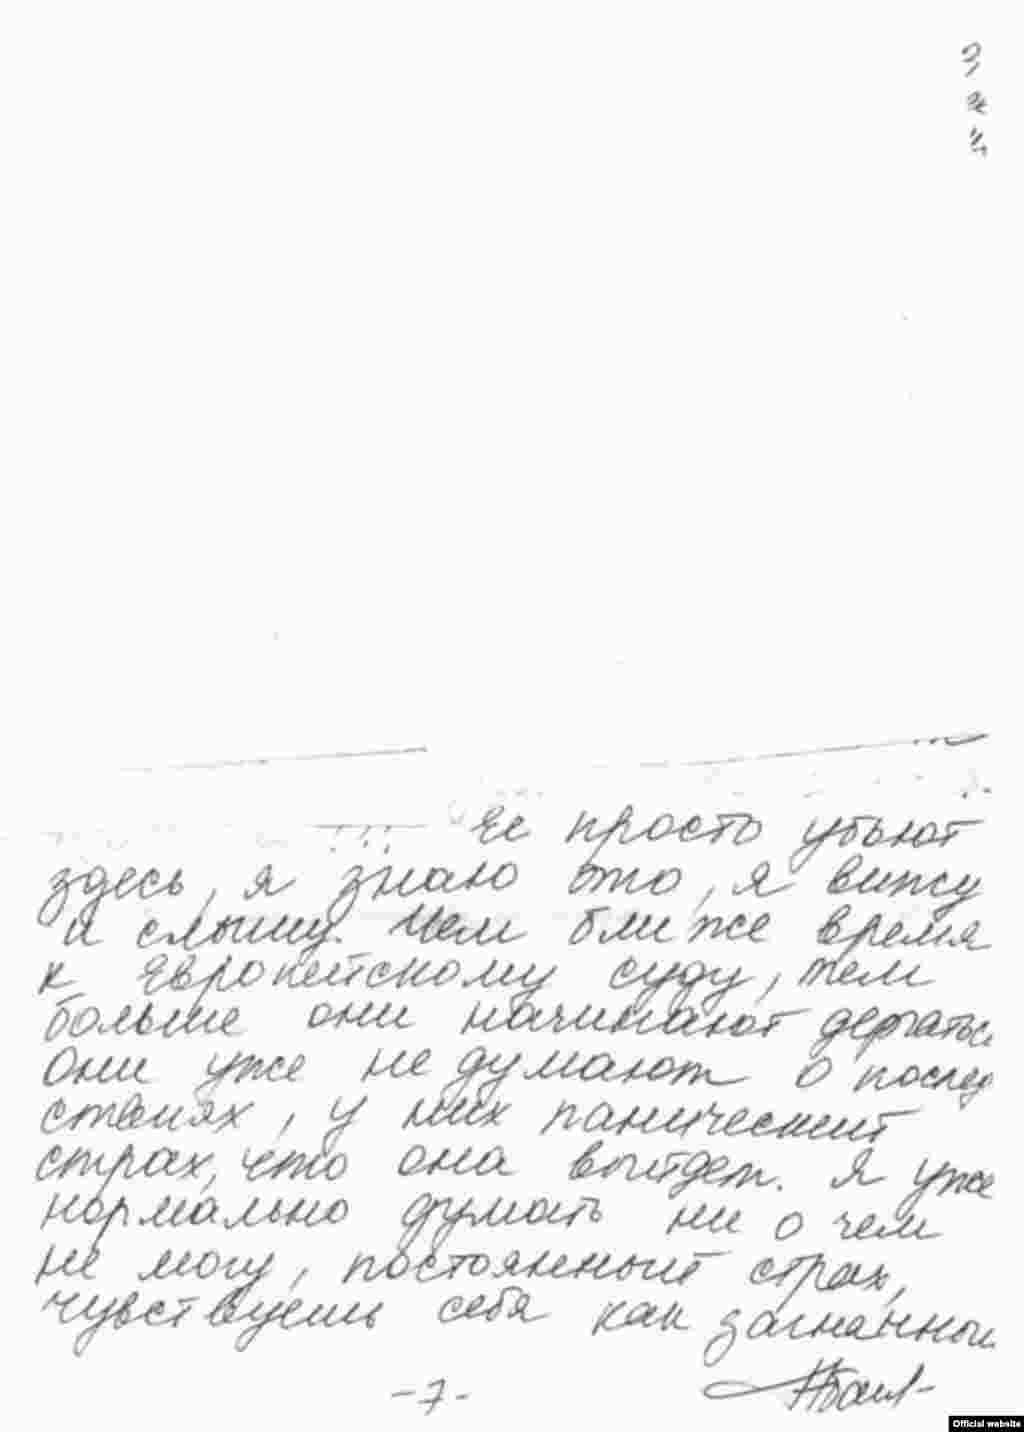 Ее просто убьют
здесь, я знаю это, я вижу
и слышу. Чем ближе время
к Европейскому суду, тем
больше они начинают дергатьс
Они уже не думают о послед
ствиях, у них панический
страх, что она выйдет. Я уже
нормально думать ни о чем
не могу, постоянный страх,
чувствуешь себя как загнанны
-7-
Official website